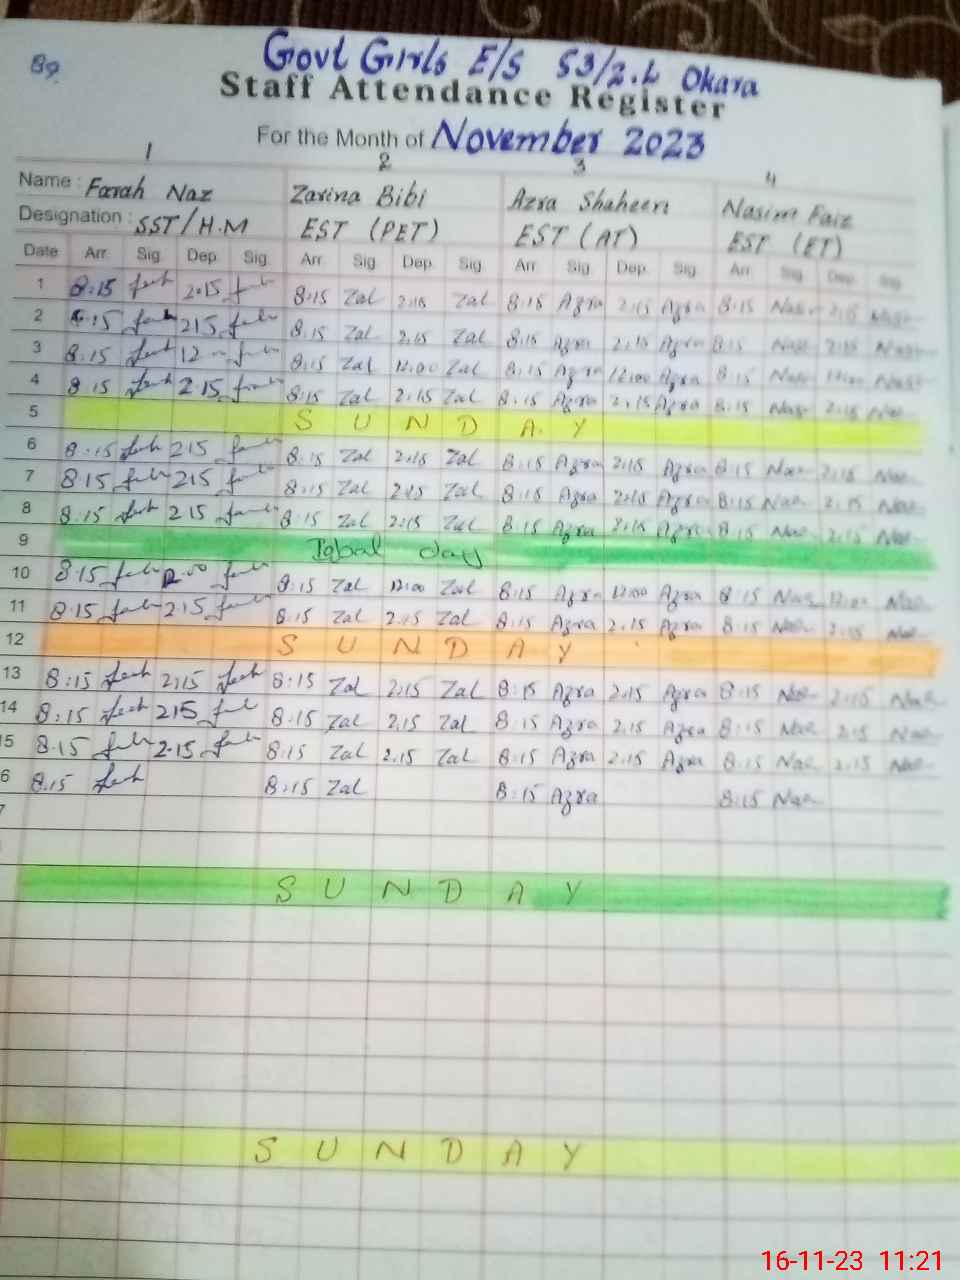 89
Govt Girls E/S 53/2.L Okara
Staff Attendance Register
For the Month of November 2023
1 2 3 4
Name : Farah Naz Zarina Bibi Azra Shaheen Nasim Faiz
Designation : SST/H.M EST (PET) EST (AT) EST (ET)
Date Arr. Sig. Dep. Sig. Arr. Sig. Dep. Sig. Arr. Sig. Dep. Sig. Arr. Sig. Dep. Sig.
1 8:15 2:15 8:15 Zal 2:15 Zal 8:15 Azra 2:15 Azra 8:15 Nas 2:15 Nas
2 8:15 215 8:15 Zal 2.15 Zal 8:15 Azra 2:15 Azra 8:15 Nas 2:15 Nas
3 8:15 12 8:15 Zal 12.00 Zal 8:15 Azra 12:00 Azra 8:15 Nas 12:00 Nas
4 8:15 2 15 8:15 Zal 2:15 Zal 8:15 Azra 2:15 Azra 8:15 Nas 2:15 Nas
5 S U N D A Y
6 8:15 215 8:15 Zal 2:15 Zal 8:15 Azra 2:15 Azra 8:15 Nas 2:15 Nas
7 8:15 215 8:15 Zal 2:15 Zal 8:15 Azra 2:15 Azra 8:15 Nas 2.15 Nas
8 8:15 215 8:15 Zal 2:15 Zal 8:15 Azra 2:15 Azra 8:15 Nas 2:15 Nas
9 Iqbal day
10 8:15 12.00 8:15 Zal 12:00 Zal 8:15 Azra 12:00 Azra 8:15 Nas 12:00 Nas
11 8:15 2:15 8:15 Zal 2.15 Zal 8:15 Azra 2.15 Azra 8:15 Nas 2:15 Nas
12 S U N D A Y
13 8:15 2:15 8:15 Zal 2:15 Zal 8:15 Azra 2:15 Azra 8:15 Nas 2:15 Nas
14 8:15 215 8:15 Zal 2.15 Zal 8:15 Azra 2.15 Azra 8:15 Nas 2:15 Nas
5 8.15 2.15 8:15 Zal 2.15 Zal 8:15 Azra 2:15 Azra 8:15 Nas 2:15 Nas
6 8.15 8:15 Zal 8:15 Azra 8:15 Nas
7
S U N D A Y
S U N D A Y
16-11-23 11:21